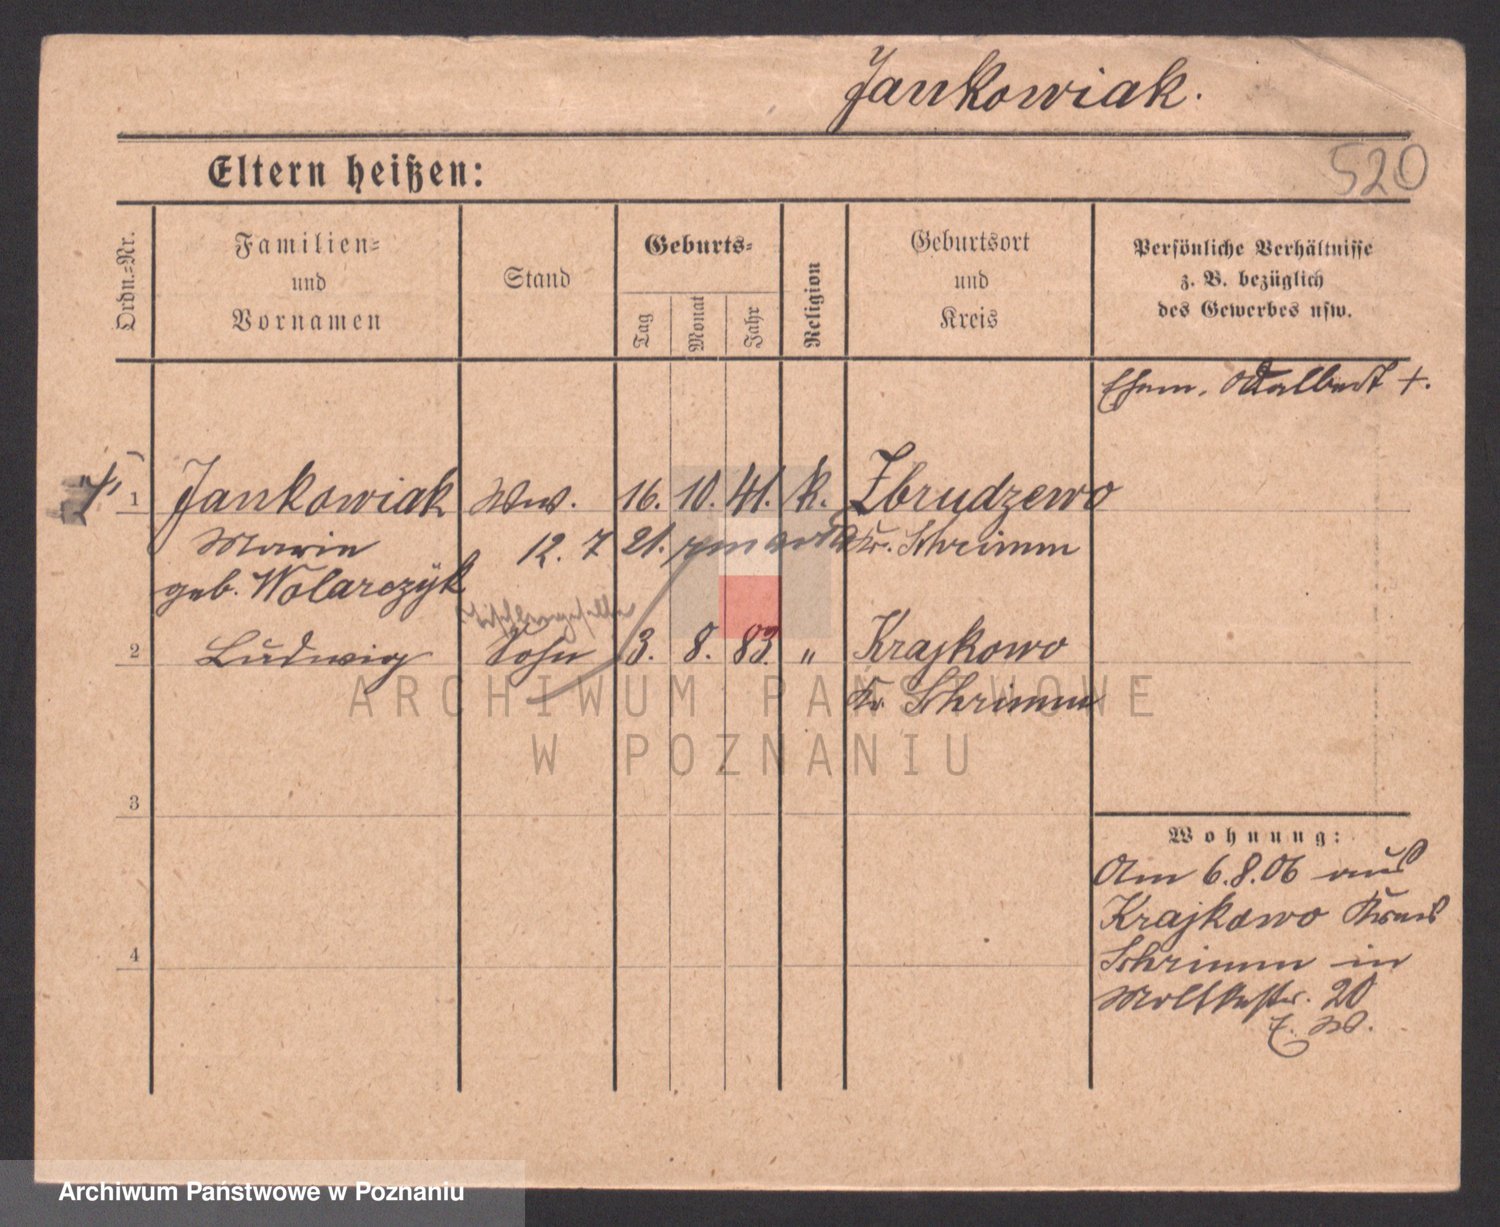 Jankowiak.
520
Eltern heißen:
Ordn.=Nr.
Familien=
und
Vornamen
Stand
Geburts=
Tag
Monat
Jahr
Religion
Geburtsort
und
Kreis
Persönliche Verhältnisse
z. B. bezüglich
des Gewerbes usw.
Ehem. Adalbert †.
1 Jankowiak Ww. 16. 10. 41. k. Zbrudzewo
Marie 12. 7 21. Kr. Schrimm
geb. Wolarczyk
Tischlergeselle
2 Ludwig Sohn 3. 8. 83. " Krajkowo
Kr. Schrimm
3
4
Wohnung:
Am 6.8.06 aus
Krajkowo Kreis
Schrimm in
Moltkestr. 20
Z. W.
ARCHIWUM PAŃSTWOWE
W POZNANIU
Archiwum Państwowe w Poznaniu